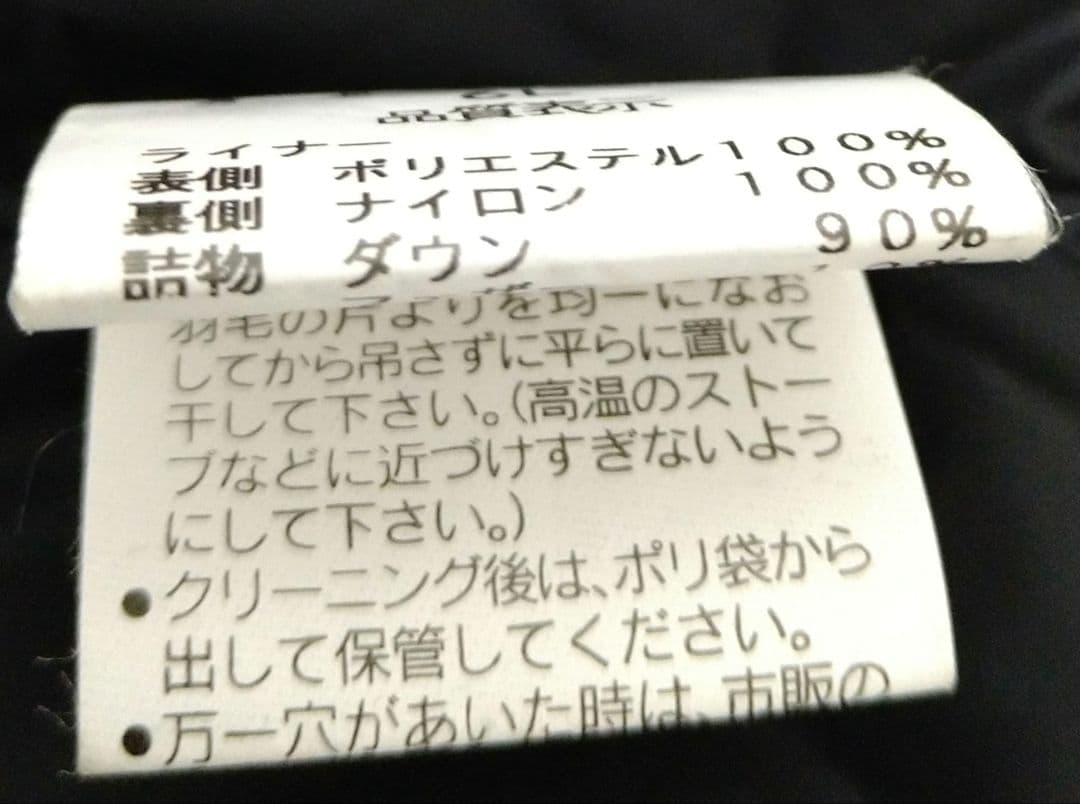 品質表示
ライナー
表側 ポリエステル100%
裏側 ナイロン 100%
詰物 ダウン 90%
羽毛の片よりを均一になお
してから吊さずに平らに置いて
干して下さい。(高温のストー
ブなどに近づけすぎないよう
にして下さい。)
●クリーニング後は、ポリ袋から
出して保管してください。
●万一穴があいた時は、市販の